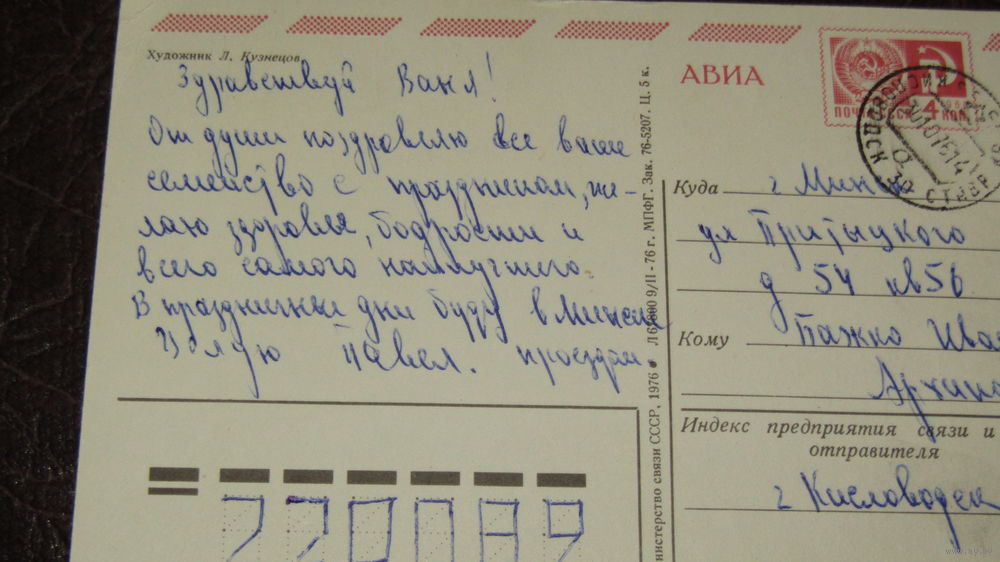 Художник Л. Кузнецов
Здравствуй Ваня!
От души поздравляю все ваше
семейство с праздником, же-
лаю здоровья, бодрости и
всего самого наилучшего.
В праздничные дни буду в Минске
проездом.
Целую Павел.
Министерство связи СССР, 1976 Л 9/II-76 г. МПФГ. Зак. 76-5207. Ц. 5 к.
АВИА
ПОЧТА СССР 4 КОП
КИСЛОВОДСК
Куда г Минск
ул Притыцкого
д 54 кв 56
Кому Пажко Ива
Индекс предприятия связи и
отправителя
г Кисловодск
220089